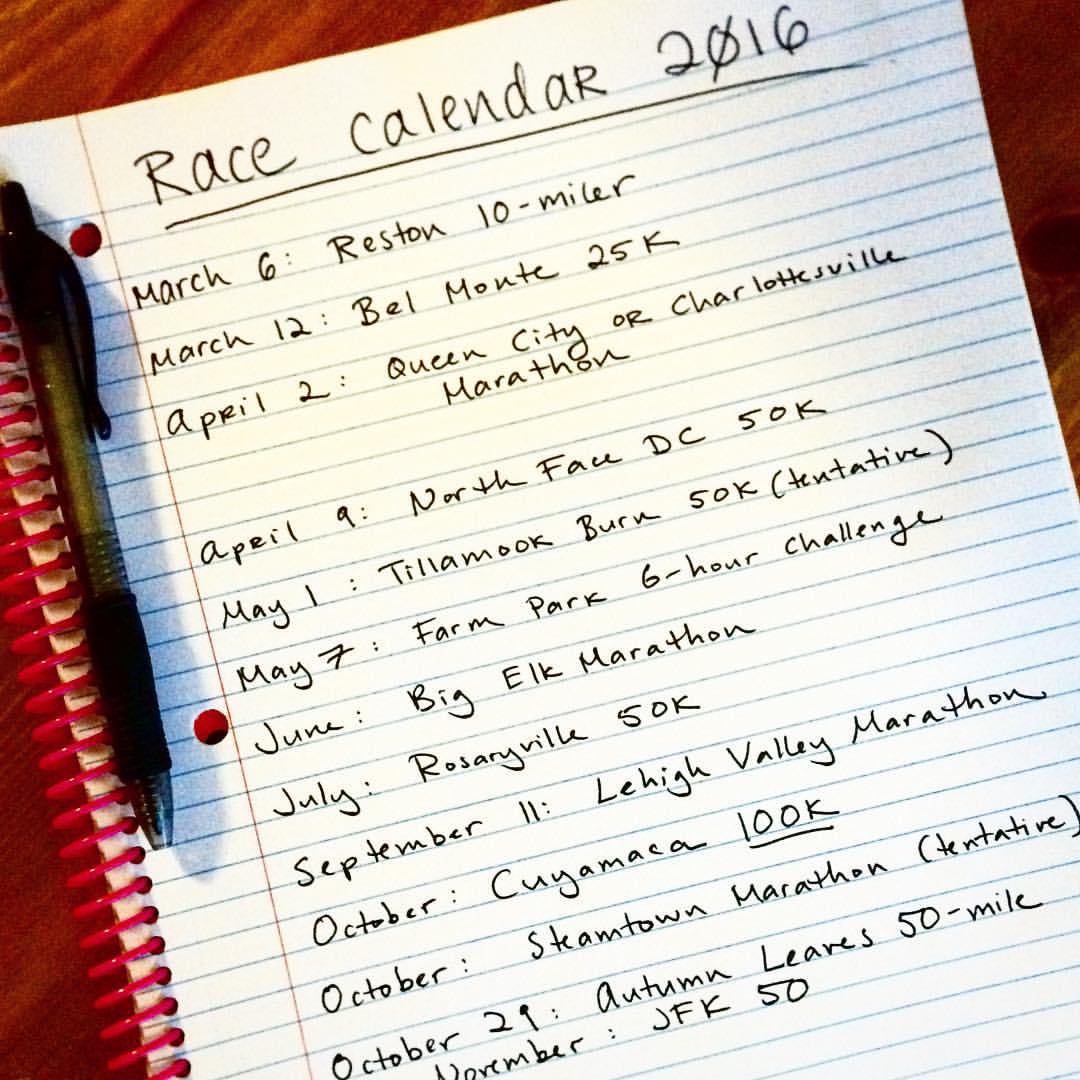 Race Calendar 2016
March 6: Reston 10-miler
March 12: Bel Monte 25K
April 2: Queen City OR Charlottesville
Marathon
April 9: North Face DC 50K
May 1: Tillamook Burn 50K (tentative)
May 7: Farm Park 6-hour challenge
June: Big Elk Marathon
July: Rosaryville 50K
September 11: Lehigh Valley Marathon
October: Cuyamaca 100K
October: Steamtown Marathon (tentative)
October 29: Autumn Leaves 50-mile
November: JFK 50